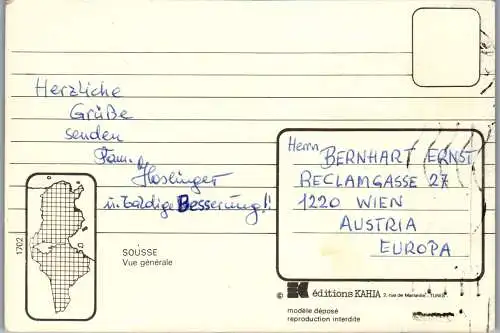 Herzliche
Grüße
senden
Fam.
Haslinger
u. baldige Besserung!!
Herrn BERNHART ERNST
RECLAMGASSE 27
1220 WIEN
AUSTRIA
EUROPA
1702
SOUSSE
Vue générale
© éditions KAHIA 3, rue de Marrakis - TUNIS
modèle déposé
reproduction interdite